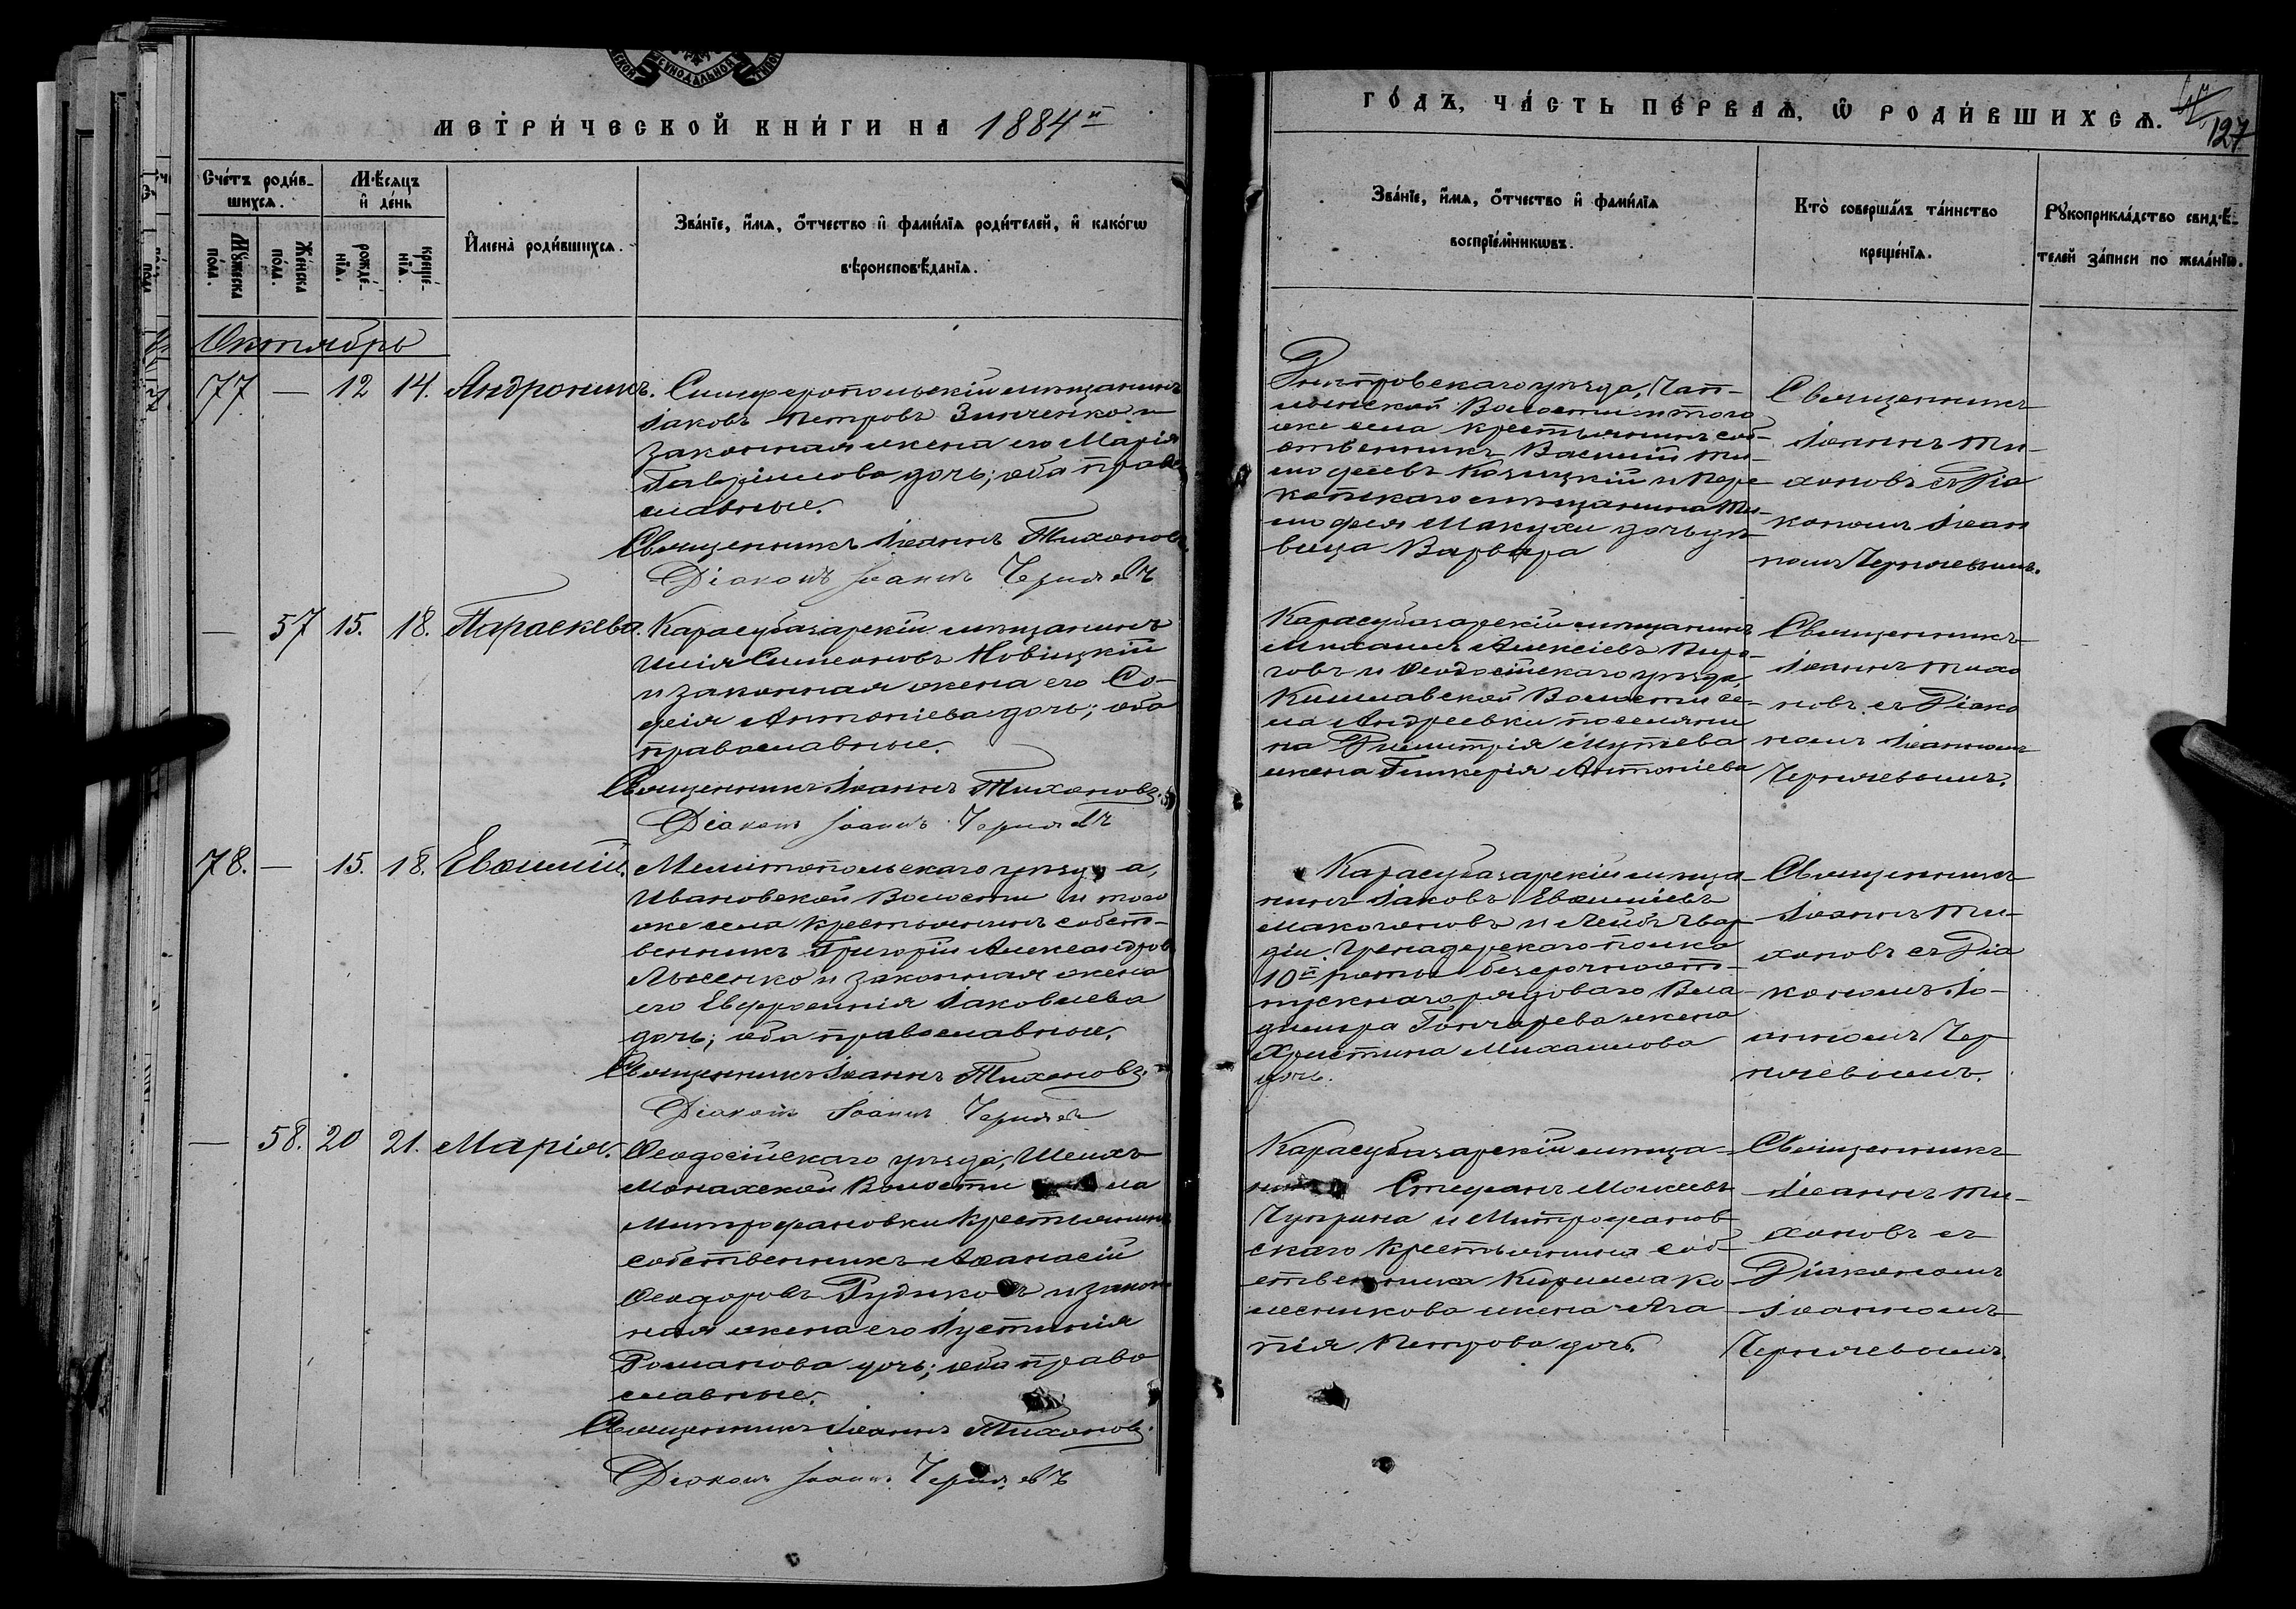 МЕТРИЧЕСКОЙ КНИГИ НА 1884й
ГОДЪ, ЧАСТЬ ПЕРВАЯ, Ѡ РОДИВШИХСЯ.
127
Счетъ родив-
шихся.
Мѣсяцъ
и день
Мужеска
пола.
Женска
пола.
рожде-
нія.
креще-
нія.
Имена родившихся.
Званіе, имя, отчество и фамилія родителей, и какогѡ
вѣроисповѣданія.
Званіе, имя, отчество и фамилія
воспріемникѡвъ.
Кто совершалъ таинство
крещенія.
Рукоприкладство свидѣ-
телей записи по желанію.
Октябрь
77 — 12 14. Андроникъ.
Симферопольскій мѣщанинъ
Іаковъ Петровъ Зинченко и
законная жена его Марія
Гавріилова дочь; оба право
славные.
Священникъ Іоаннъ Тихоновъ.
Діаконъ Іоаннъ Чернявъ
Днѣпровскаго уѣзда, Чап-
линской Волости и того
же села крестьянинъ соб-
ственникъ Василій Ти-
мофеевъ Козицкій и Пере
копскаго мѣщанина Ти-
мофея Макухи дочь дѣ-
вица Варвара
Священникъ
Іоаннъ Ти-
хоновъ съ Діа
кономъ Іоан
номъ Чернявевымъ.
— 57 15. 18. Параскева.
Карасубазарскій мѣщанинъ
Илія Симеоновъ Новицкій
и законная жена его Со-
фія Антоніева дочь; оба
православные.
Священникъ Іоаннъ Тихоновъ.
Діаконъ Іоаннъ Чернявъ
Карасубазарскій мѣщанинъ
Михаилъ Алексіевъ Пиро-
говъ и Ѳеодосійскаго уѣзда,
Кишлавской Волости се-
ла Андреевки поселяни
на Димитрія Мутева
жена Гликерія Антоніева
Священникъ
Іоаннъ Тихо
новъ съ Діако
номъ Іоанномъ
Чернявевымъ.
78. — 15. 18. Евѳимій.
Мелитопольскаго уѣзда,
Ивановской Волости и того
же села крестьянинъ собст-
венникъ Григорій Александров
Лысенко и законная жена
его Евфросинія Іаковлева
дочь; оба православные.
Священникъ Іоаннъ Тихоновъ.
Діаконъ Іоаннъ Чернявъ
Карасубазарскій мѣща-
нинъ Іаковъ Евѳиміевъ
Макогоновъ и Лейбъ Гвар
діи Гренадерскаго полка
10й роты безсрочноот-
пускнаго рядоваго Вла-
диміра Гончарева жена
Христина Михаилова
дочь.
Священникъ
Іоаннъ Ти-
хоновъ съ Діа
кономъ Іо-
анномъ Чер
нявевымъ.
— 58. 20 21. Марія.
Ѳеодосійскаго уѣзда, Шеихъ
Монахской Волости ла
Митрофановки Крестьянинъ
собственникъ Аѳанасій
Ѳеодоровъ Рудиковъ и закон
ная жена его Іустинія
Романова дочь; оба право
славные.
Священникъ Іоаннъ Тихоновъ.
Діаконъ Іоаннъ Чернявъ
Карасубазарскій мѣща-
Стефанъ Моисеевъ
Чуприна и Митрофанов
скаго Крестьянина соб-
ственника Кирилла Ко
лесникова жена Ага
пія Петрова дочь.
Священникъ
Іоаннъ Ти-
хоновъ съ
Діакономъ
Іоанномъ
Чернявевымъ.